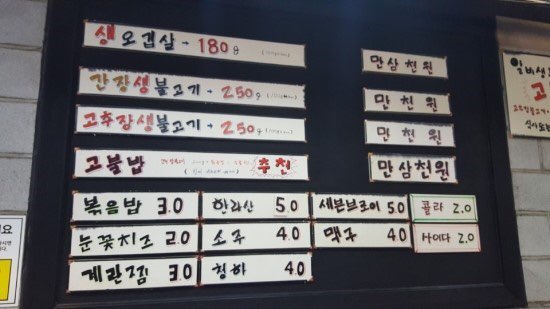 생오겹살 → 180g
만삼천원
간장생불고기 → 250g
만천원
고추장생불고기 → 250g
만천원
고불밥
추천
만삼천원
볶음밥 3.0
한라산 5.0
세븐브로이 5.0
콜라 2.0
눈꽃치즈 2.0
소주 4.0
맥주 4.0
사이다 2.0
계란찜 3.0
청하 4.0